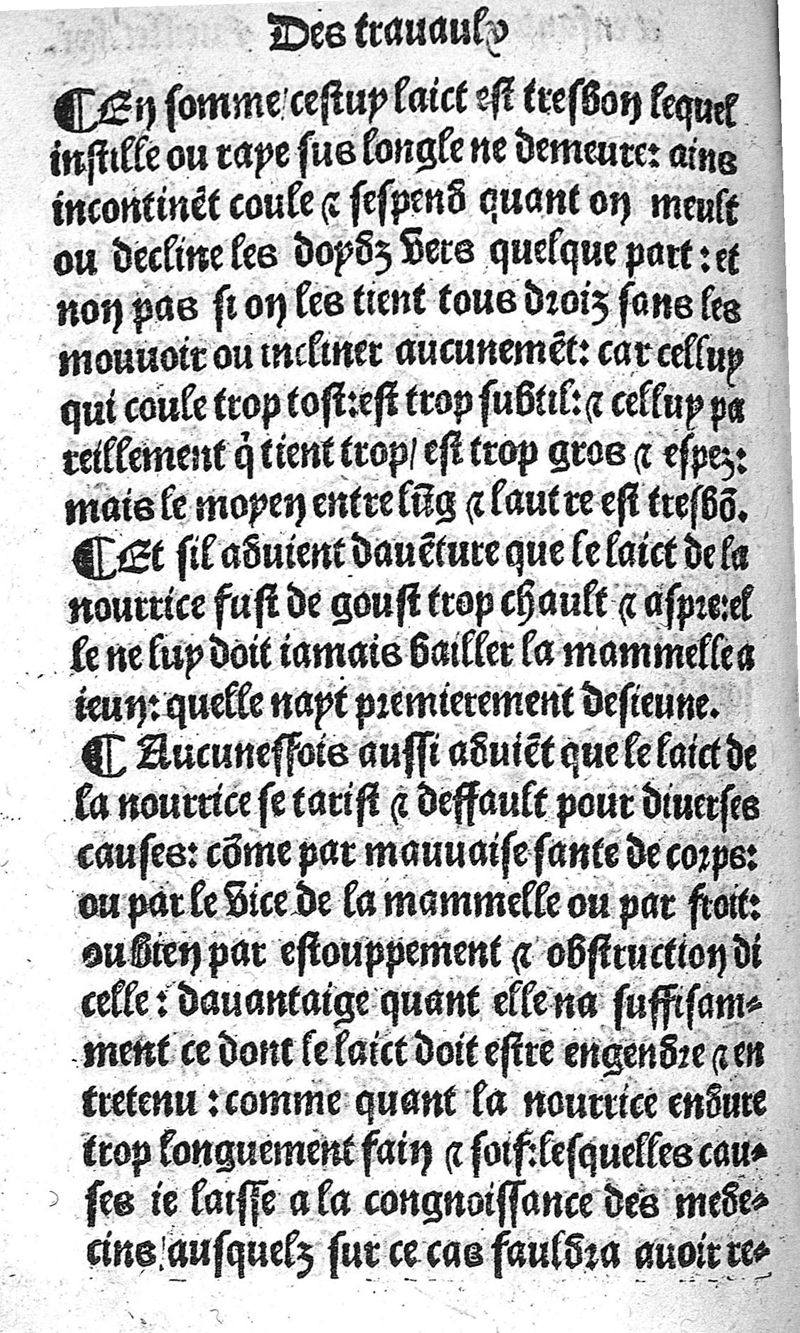 Des trauaulx
¶ En somme/ cestuy laict est tresbon lequel
instille ou raye sus longle ne demeure: ains
incontinēt coule ⁊ sespend quant on meult
ou decline les doydz vers quelque part : et
non pas si on les tient tous droiz sans les
mouuoir ou incliner aucunemēt: car celluy
qui coule trop tost: est trop subtil: ⁊ celluy pa
reillement q̄ tient trop/ est trop gros ⁊ espez:
mais le moyen entre lūg ⁊ lautre est tresbō.
¶ Et sil aduient dauēture que le laict de la
nourrice fust de goust trop chault ⁊ aspre: el
le ne luy doit iamais bailler la mammelle a
ieun: quelle nayt premierement desieune.
¶ Aucunesfois aussi aduiēt que le laict de
la nourrice se tarist ⁊ deffault pour diuerses
causes: cōme par mauuaise sante de corps:
ou par le vice de la mammelle ou par froit:
ou bien par estouppement ⁊ obstruction di
celle : dauantaige quant elle na suffisam⸗
ment ce dont le laict doit estre engendre ⁊ en
tretenu : comme quant la nourrice endure
trop longuement fain ⁊ soif: lesquelles cau⸗
ses ie laisse a la congnoissance des mede⸗
cins/ ausquelz sur ce cas fauldra auoir re⸗